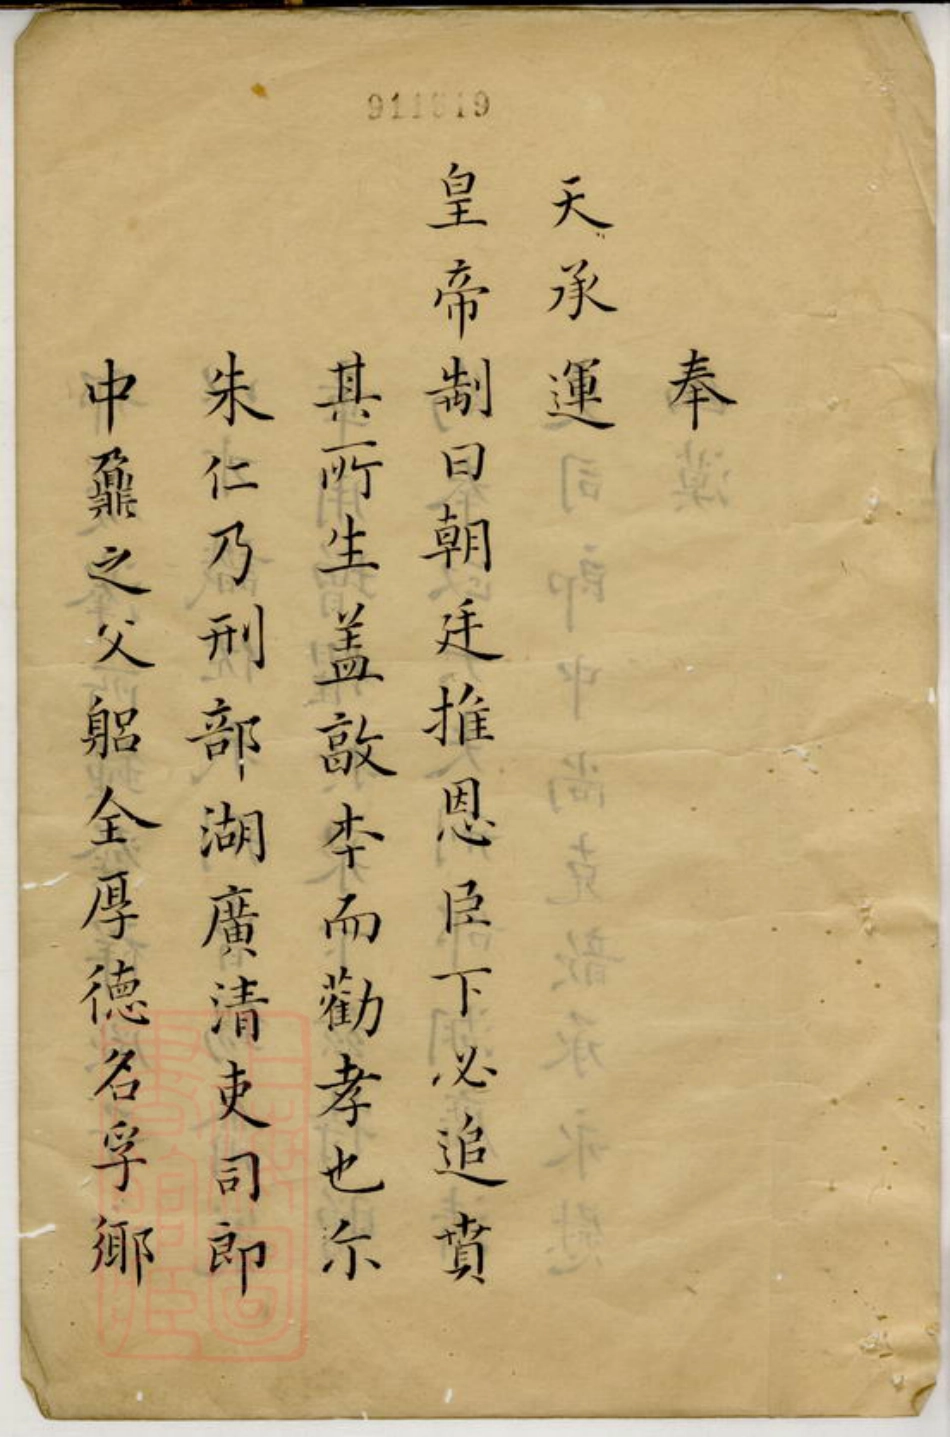 911819
奉
天承運
皇帝制曰朝廷推恩臣下必追賁
其所生盖敦本而勸孝也尓
朱仁乃刑部湖廣清吏司郎
中鼐之父躬全厚德名孚鄉